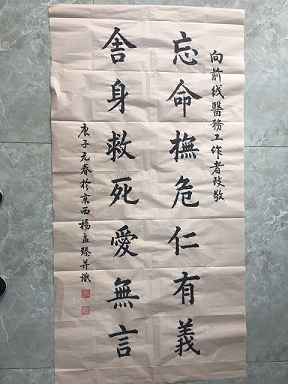 向前线醫務工作者致敬
忘命撫危仁有義
舍身救死愛無言
庚子元春於京西楊